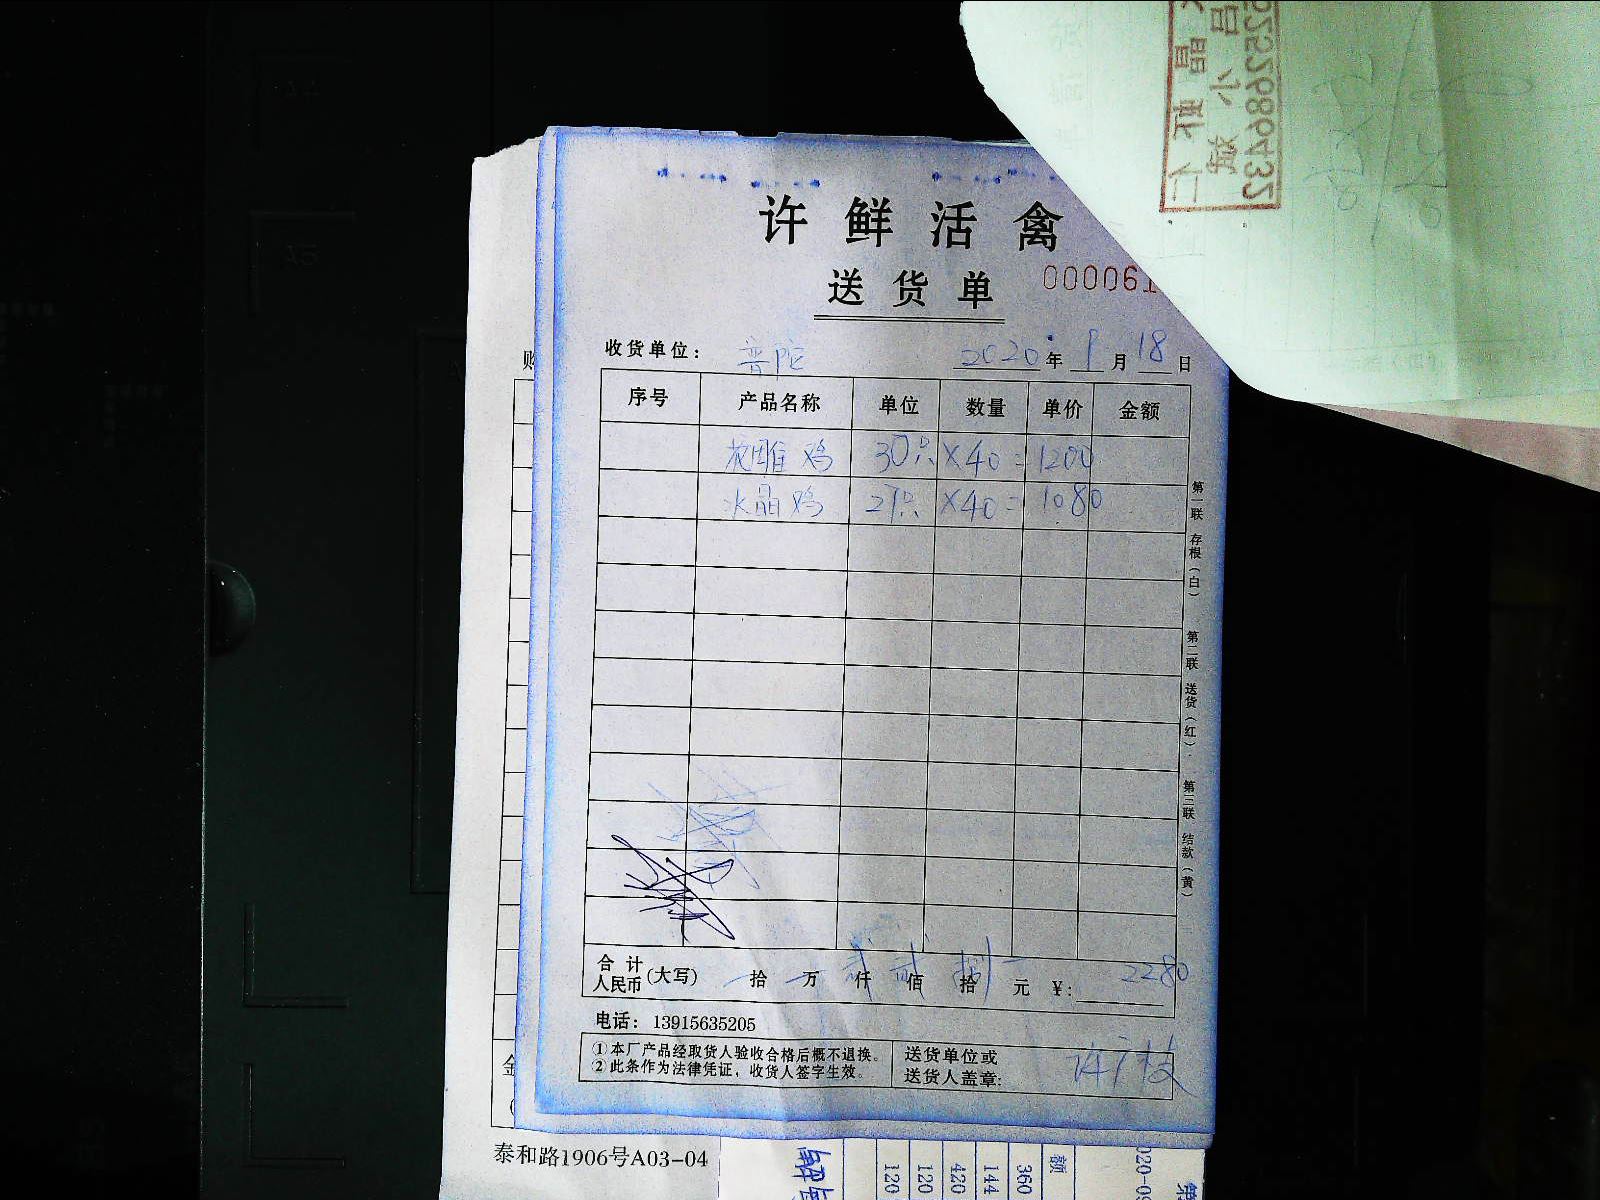 许鲜活禽
送货单
000061
收货单位： 普陀 2020年 9月 18日
序号 产品名称 单位 数量 单价 金额
花雕鸡 30只 ×40= 1200
水晶鸡 27只 ×40= 1080
第一联 存根（白） 第二联 送货（红） 第三联 结款（黄）
合计人民币(大写) 拾 万 贰仟 贰佰 捌拾 元 ¥: 2280
电话： 13915635205
①本厂产品经取货人验收合格后概不退换。
②此条作为法律凭证，收货人签字生效。
送货单位或
送货人盖章:
泰和路1906号A03-04
额
360
144
420
120
120